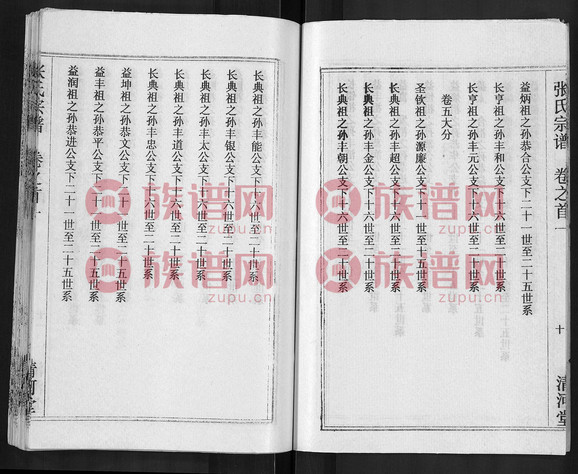 张氏宗谱 卷之首一
十
清河堂
益炳祖之孙恭合公支下二十一世至二十五世系
长亨祖之孙丰和公支下十六世至二十世系
长亨祖之孙丰元公支下十六世至二十世系
卷五大分
圣钦祖之孙源廉公支下十一世至十五世系
长典祖之孙丰超公支下十六世至二十世系
长典祖之孙丰金公支下十六世至二十世系
长典祖之孙丰朝公支下十六世至二十世系
长典祖之孙丰能公支下十六世至二十世系
长典祖之孙丰银公支下十六世至二十世系
长典祖之孙丰太公支下十六世至二十世系
长典祖之孙丰道公支下十六世至二十世系
长典祖之孙丰忠公支下十六世至二十世系
益坤祖之孙恭文公支下二十一世至二十五世系
益丰祖之孙恭平公支下二十一世至二十五世系
益润祖之孙恭进公支下二十一世至二十五世系
张氏宗谱
清河堂
族谱网
zupu.cn
族谱网
zupu.cn
族谱网
zupu.cn
族谱网
zupu.cn